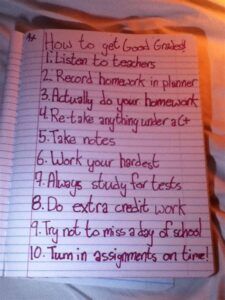 How to get Good Grades!
1. Listen to teachers
2. Record homework in planner
3. Actually do your homework
4. Re-take anything under a C+
5. Take notes
6. Work your hardest
7. Always study for tests
8. Do extra credit work
9. Try not to miss a day of school
10. Turn in assignments on time!